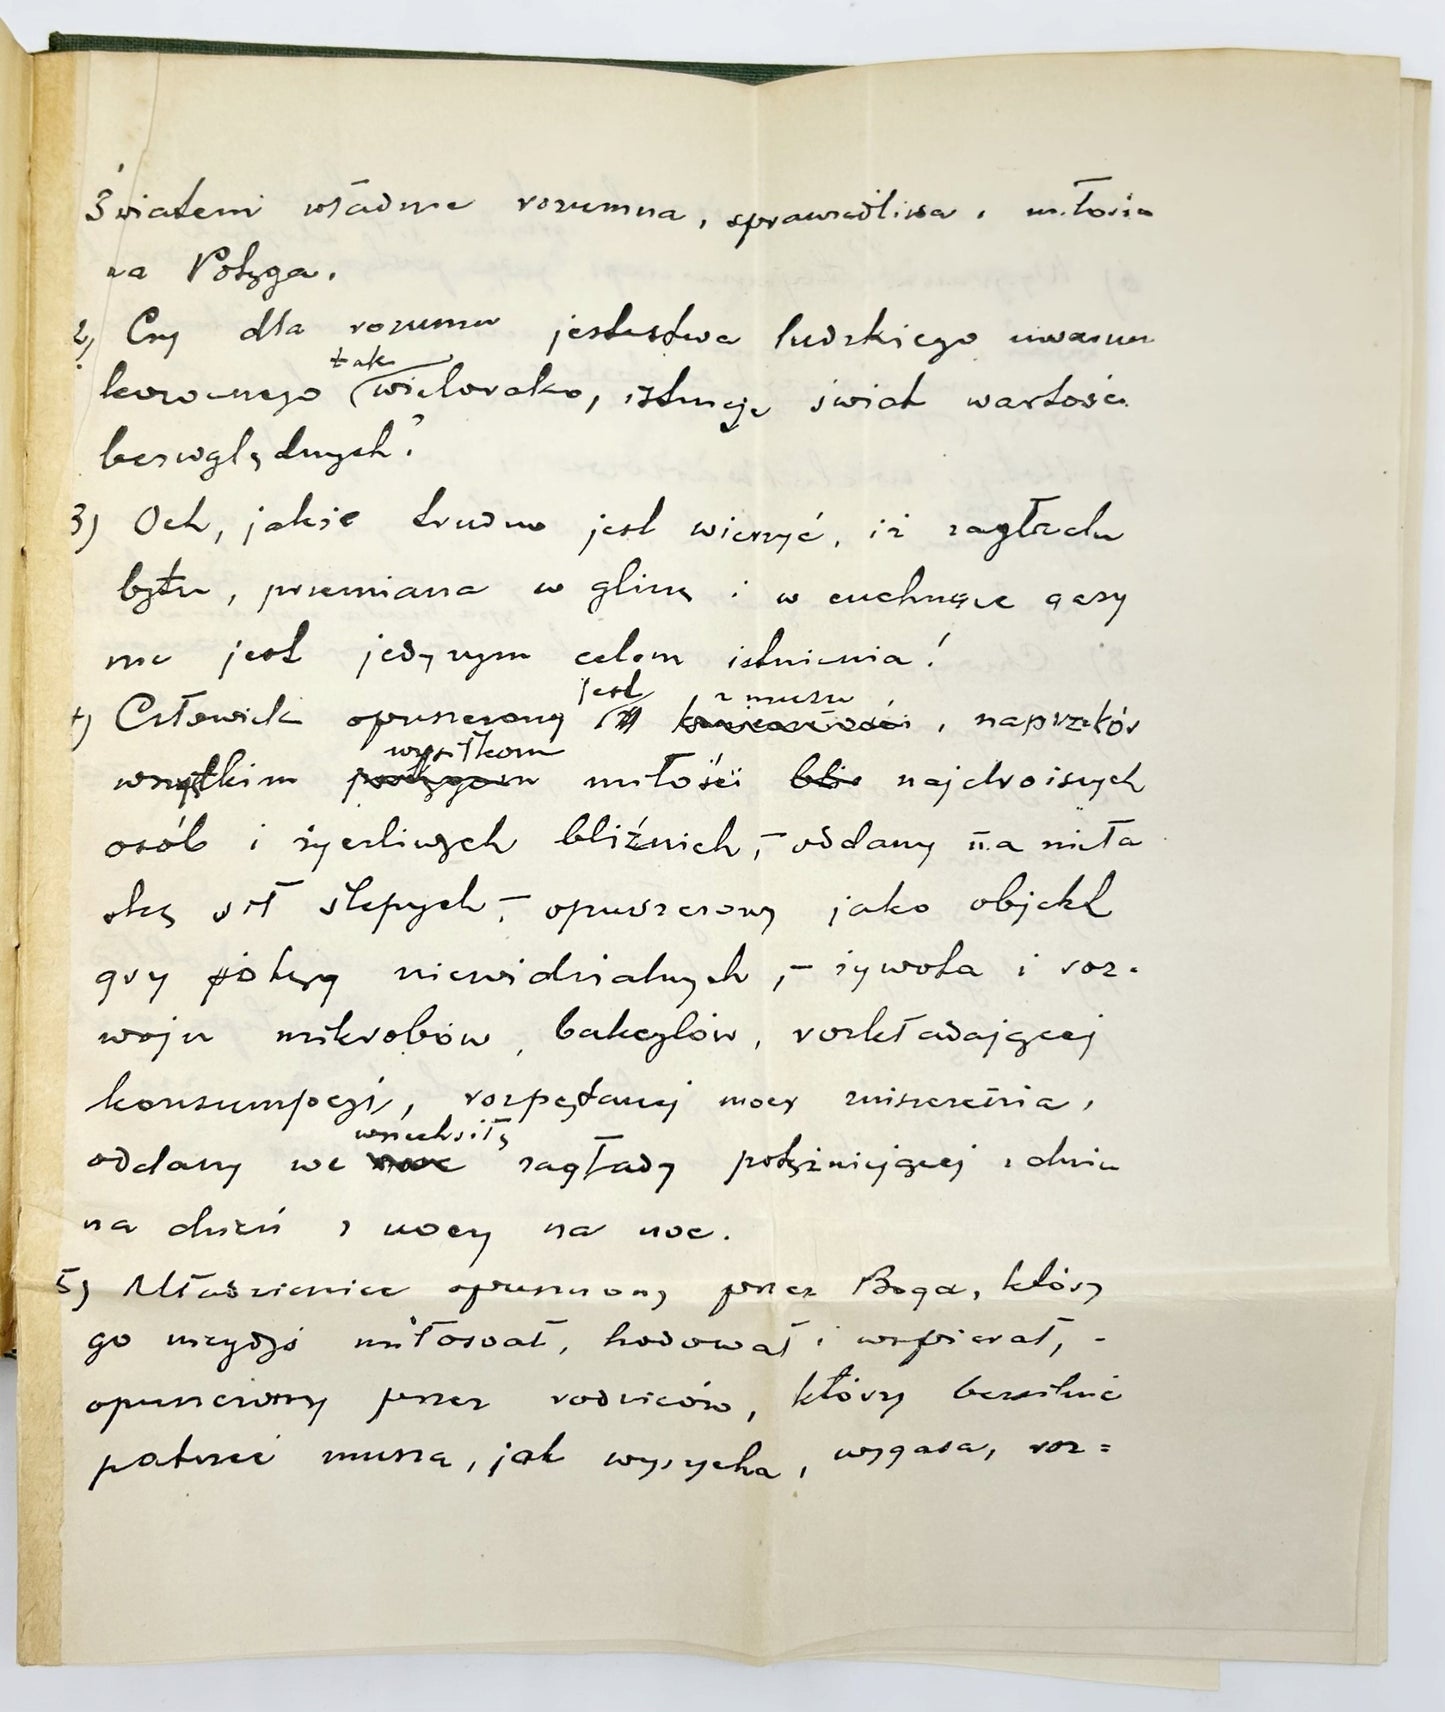 Światem władnie rozumna, sprawiedliwa, miłosier
na Potęga.
2) Czy dla rozumu jestestwa ludzkiego uwarun
tak
kowanego wielorako, istnieje świat wartości
bezwględnych?
3) Och, jakże trudno jest wierzyć, iż zagłada
bytu, przemiana w glinę i w cuchnące gazy
nie jest jedynym celem istnienia!
jest z musu
4) Człowiek opuszczony, naprzekór
wysiłkom
wszystkim potęgom miłości najdroższych
osób i życzliwych bliźnich, – oddany na nieła
skę sił ślepych, – opuszczony jako objekt
gry potęg niewidzialnych, – żywota i roz-
woju mikrobów, bakcylów, rozkładającej
konsumpcji, rozpętanej mocy zniszczenia,
wszechsiłę
oddany we moc zagłady potężniejącej z dnia
na dzień z nocy na noc.
5) Młodzieniec opuszczony przez Boga, który
go miłował, hodował i wspierał, -
opuszczony przez rodziców, którzy bezsilnie
patrzeć muszą, jak wysycha, wygasa, roz=